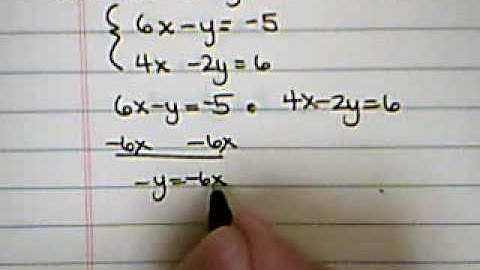 6x-y=-5
4x -2y=6
6x-y=-5 . 4x-2y=6
-6x -6x
-y=-6x